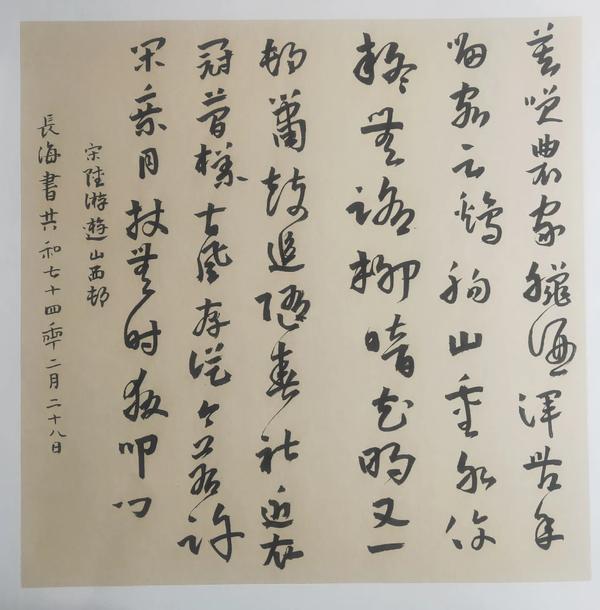 莫笑農家臘酒渾豐年
留客足鷄豚山重水復
疑無路柳暗花明又一
邨簫鼓追隨春社近衣
冠簡樸古風存從今若許
閑乘月杖無时夜叩门
宋陸游遊山西邨
長海書共和七十四年二月二十八日